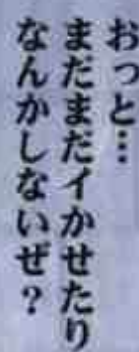 おっと…
まだまだイかせたり
なんかしないぜ？